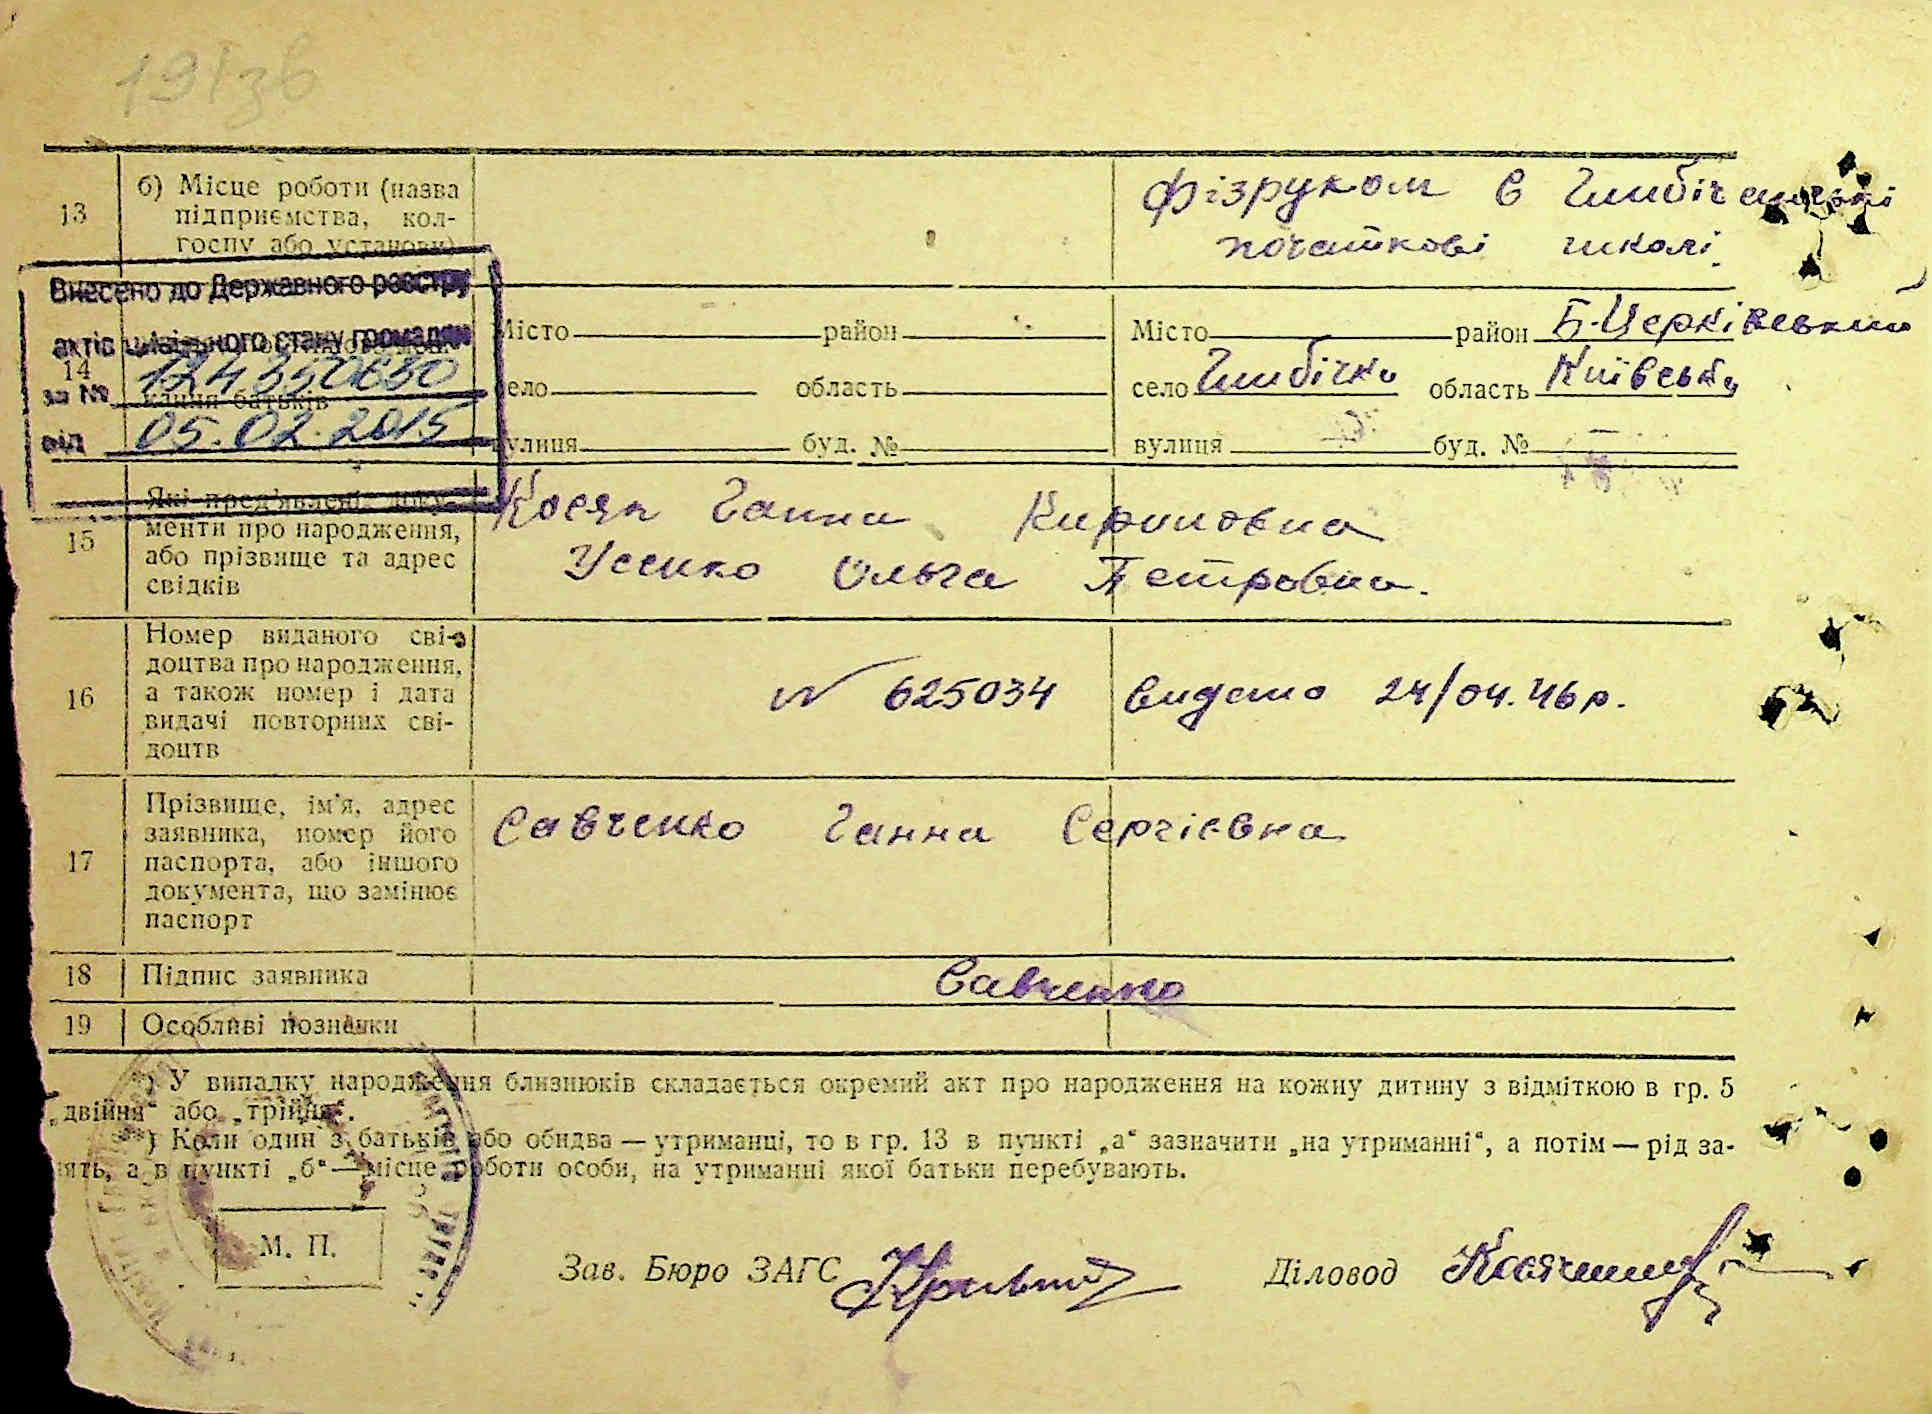 19 І зв
13
б) Місце роботи (назва
підприємства, кол-
госпу або установи)
фізруком в Глибічанські
початкові школі.
Внесено до Державного реєстру
актів цивільного стану громадян
за № 124350630
від 05.02.2015
14
кання батьків
Місто район
село область
вулиця буд. №
Місто район Б-Церківський
село Глибічка область Київська
вулиця буд. №
15
Які пред'явлені доку-
менти про народження,
або прізвище та адрес
свідків
Косяк Ганна Кириловна
Усенко Ольга Петровна.
16
Номер виданого сві-
доцтва про народження,
а також номер і дата
видачі повторних сві-
доцтв
№ 625034 видано 24/04.46р.
17
Прізвище, ім'я, адрес
заявника, номер його
паспорта, або іншого
документа, що замінює
паспорт
Савченко Ганна Сергієвна
18 Підпис заявника Савченко
19 Особливі познаки
*) У випадку народження близнюків складається окремий акт про народження на кожну дитину з відміткою в гр. 5
„двійня“ або „трійня“.
**) Коли один з батьків або обидва — утриманці, то в гр. 13 в пункті „а“ зазначити „на утриманні“, а потім — рід за-
нять, а в пункті „б“ — місце роботи особи, на утриманні якої батьки перебувають.
М. П.
Зав. Бюро ЗАГС
Діловод